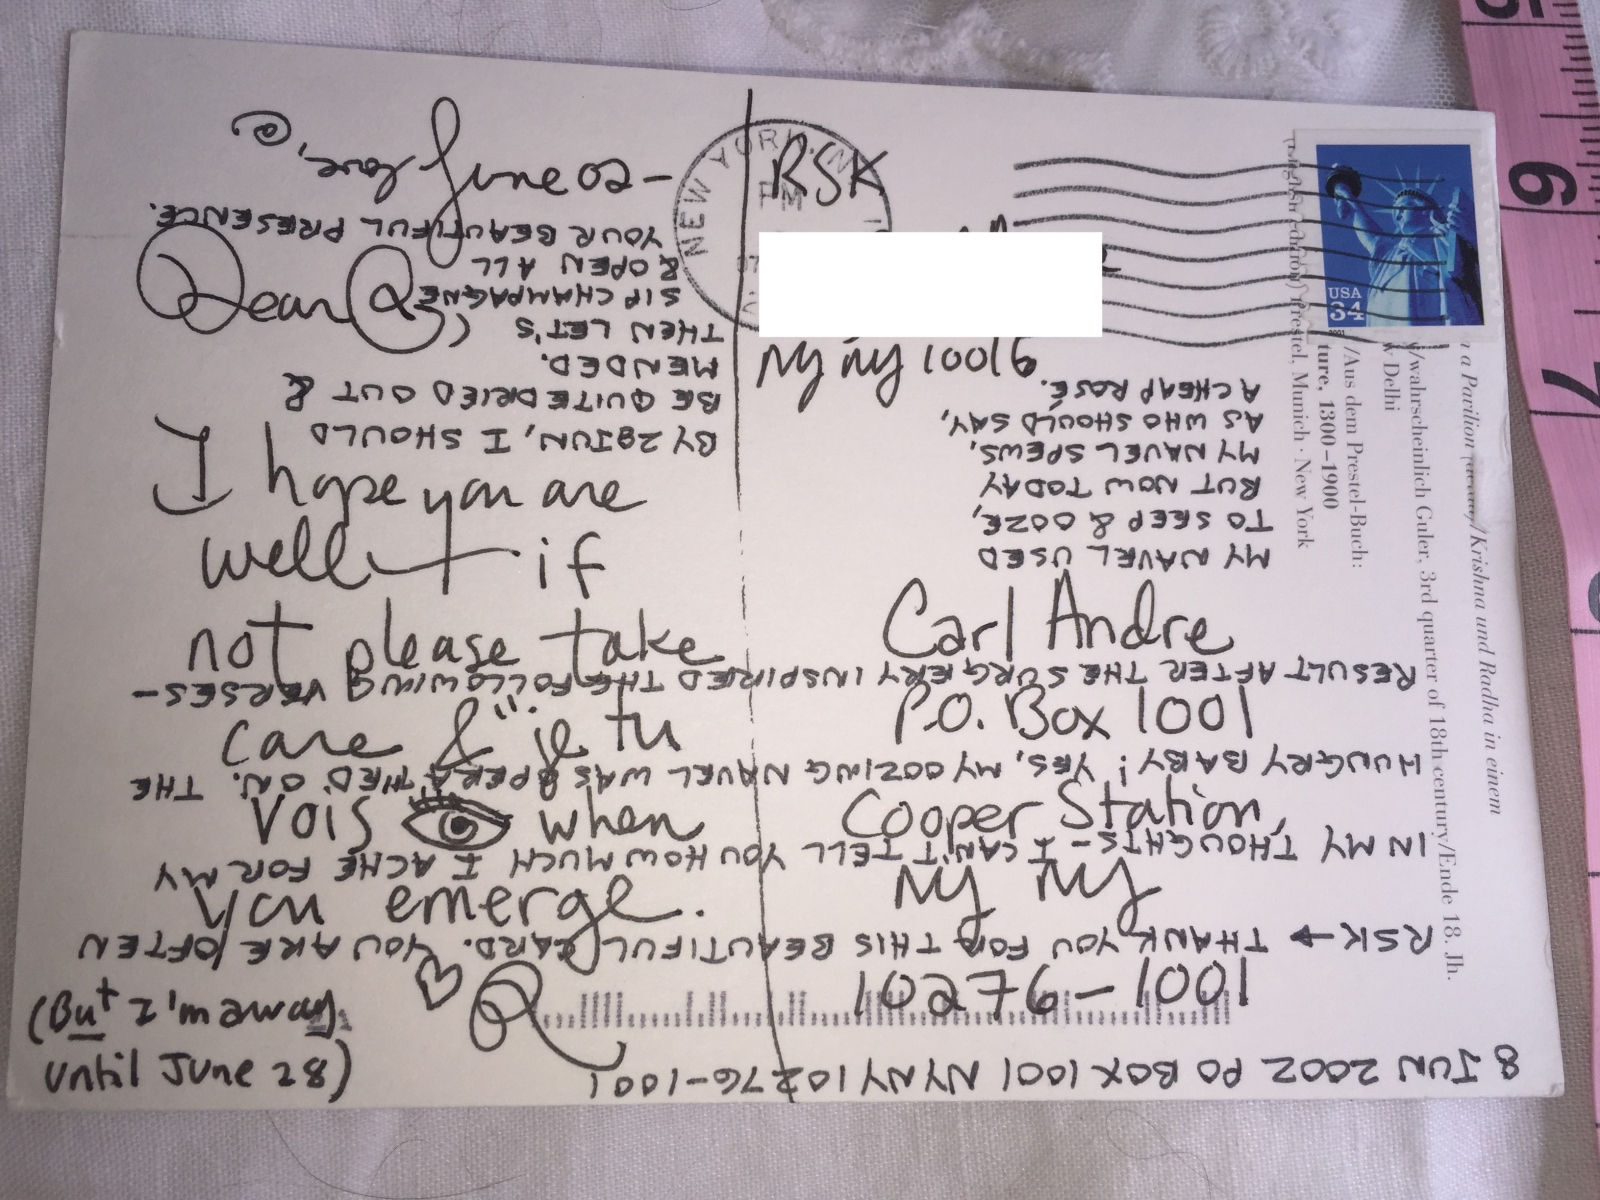 June 02 —
Dear @
I hope you are
well — if
not please take
care & "je tu
vois when
you emerge.
♡ R
(But I'm away
until June 28)
NEW YORK, N
PM
RSK
NY NY 10016
Carl Andre
P.O. Box 1001
Cooper Station,
NY NY
10276-1001
USA
34
2001
8 JUN 2002 PO BOX 1001 NYNY 10276-1001
RSK → THANK YOU FOR THIS BEAUTIFUL CARD. YOU ARE OFTEN
IN MY THOUGHTS - I CAN'T TELL YOU HOW MUCH I ACHE FOR MY
HUNGRY BABY! YES, MY OOZING NAVEL WAS OPERATED ON. THE
RESULT AFTER THE SURGERY INSPIRED THE FOLLOWING VERSES-
MY NAVEL USED
TO SEEP & OOZE,
BUT NOW TODAY
MY NAVEL SPEWS,
AS WHO SHOULD SAY,
A CHEAP ROSÉ.
BY 28 JUN, I SHOULD
BE QUITE DRIED OUT &
MENDED.
THEN LET'S
SIP CHAMPAGNE
& OPEN ALL
YOUR BEAUTIFUL PRESENCE.
love, @
n a Pavilion /Krishna und Radha in einem
/wahrscheinlich Guler, 3rd quarter of 18th century/Ende 18. Jh.
Delhi
/Aus dem Prestel-Buch:
ture, 1300–1900
Prestel, Munich · New York
5
6
7